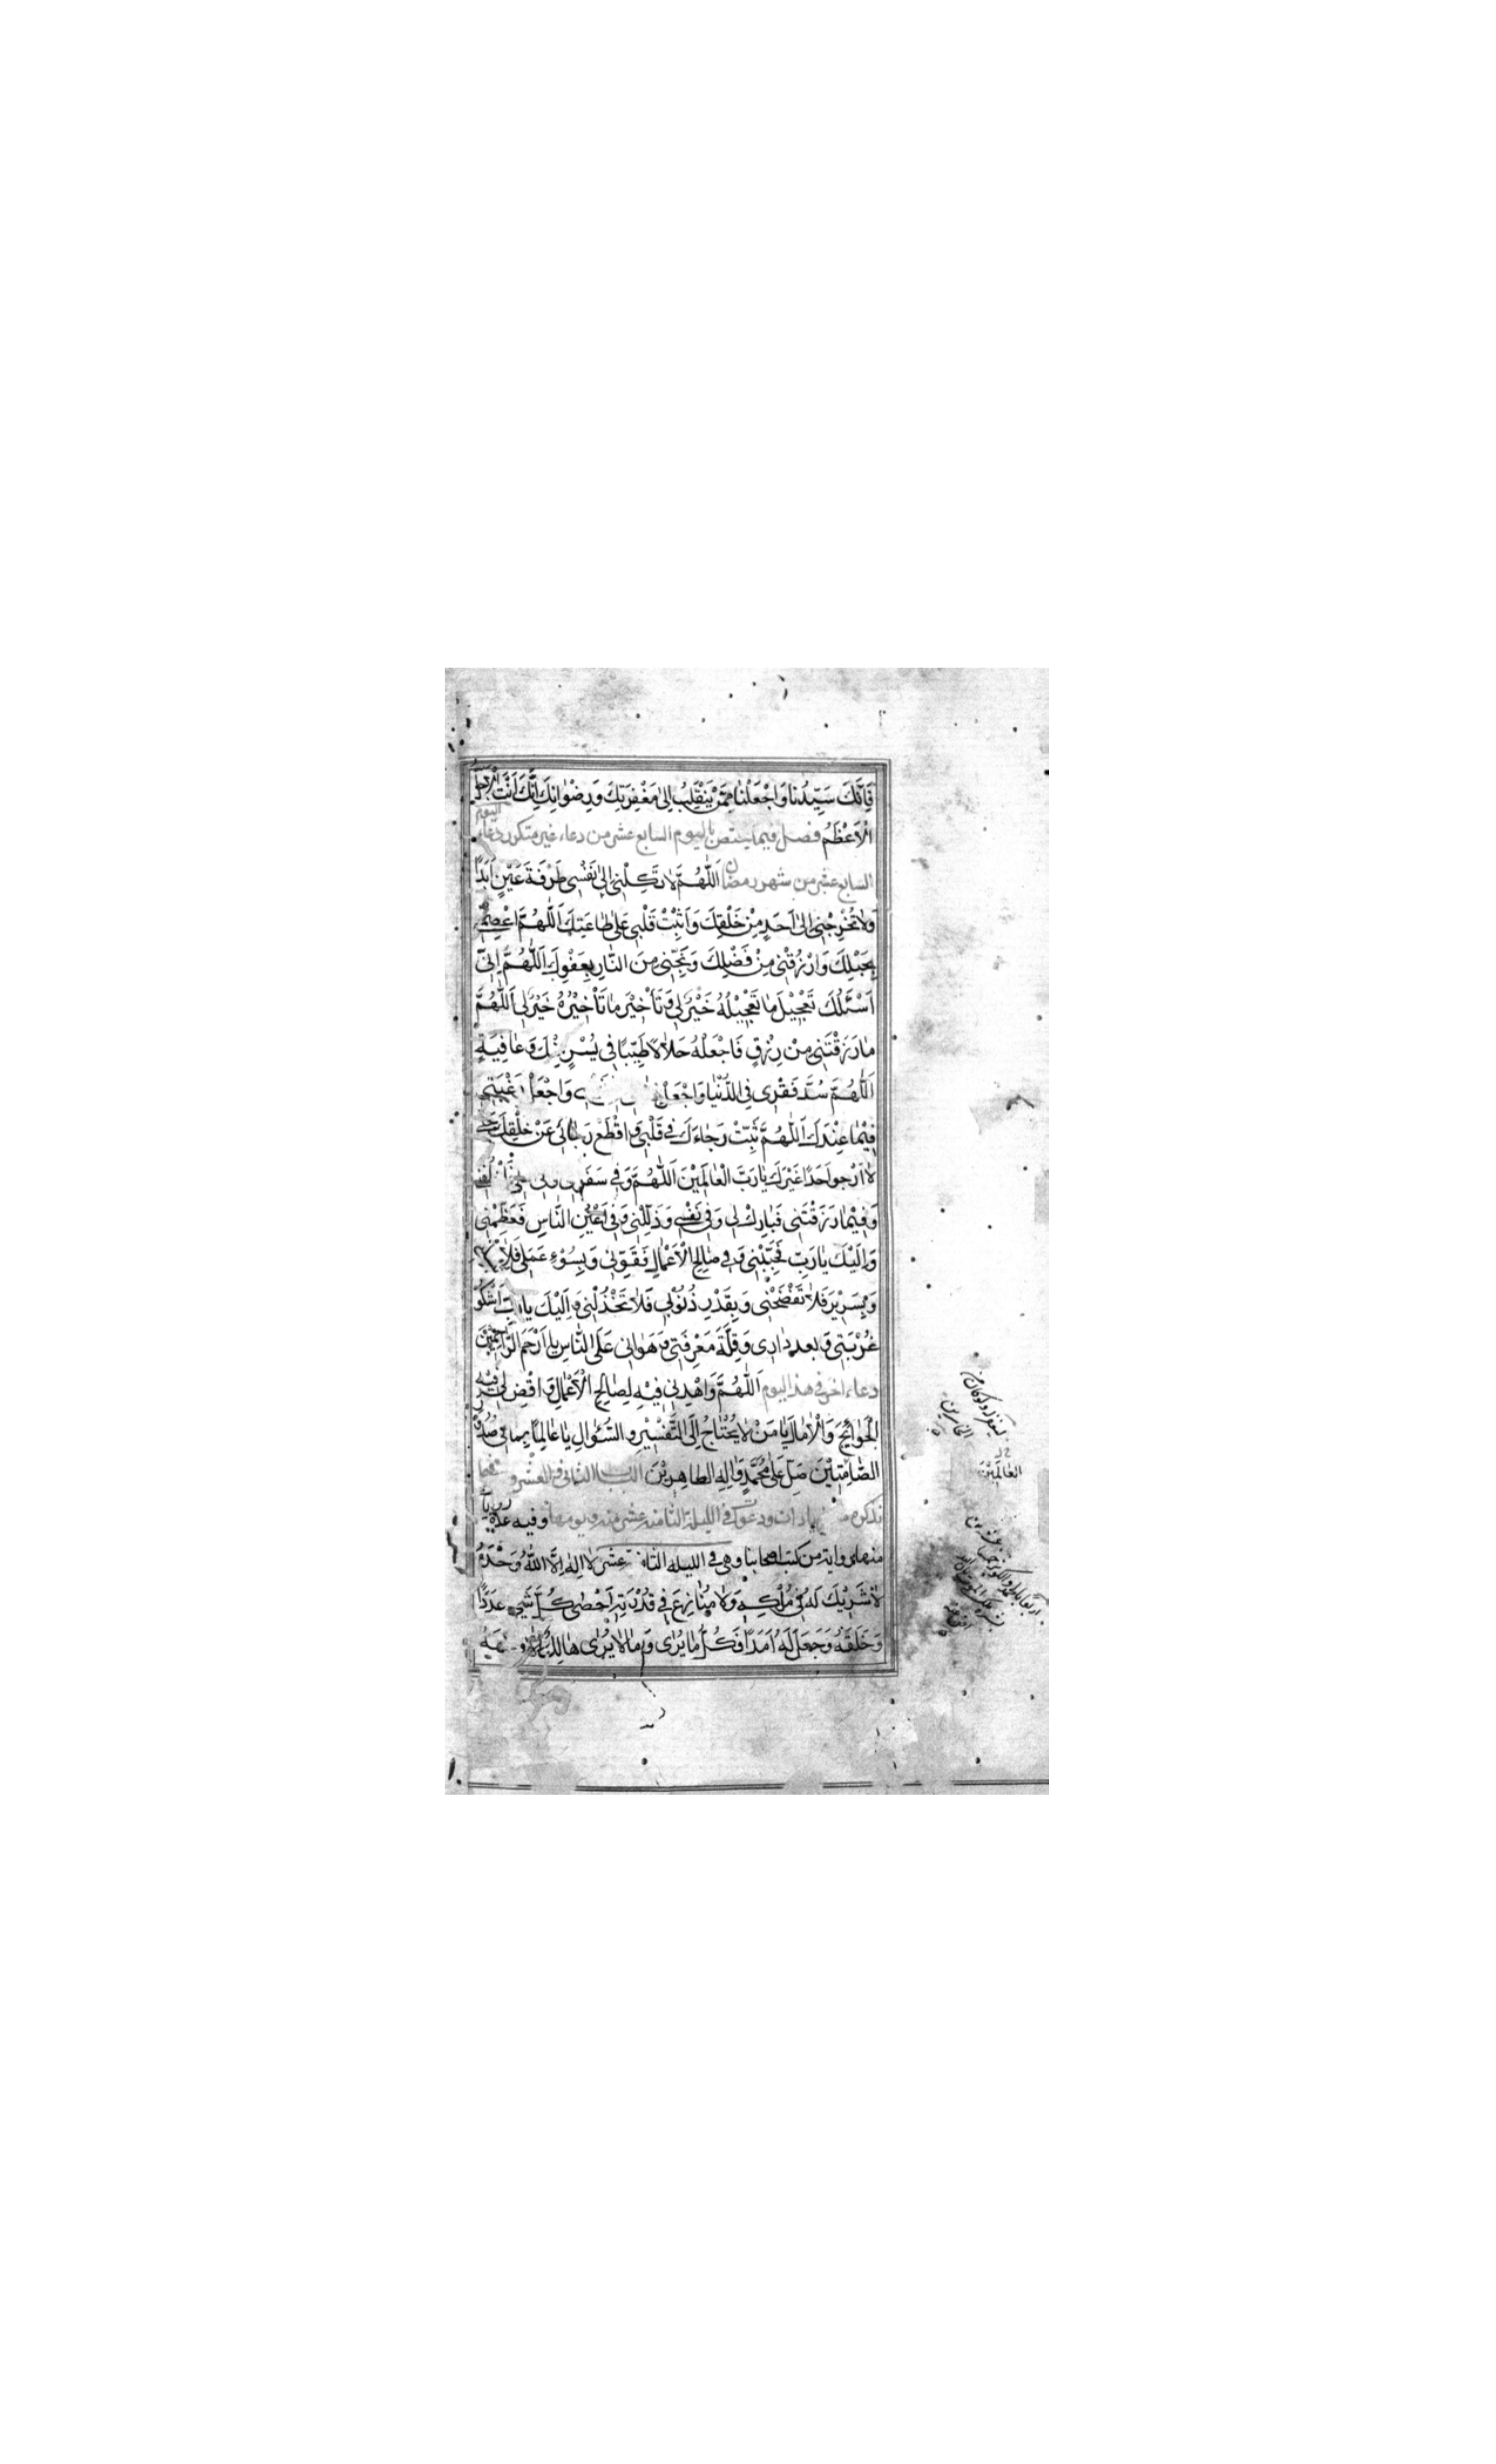 فَإِنَّكَ سَيِّدُنا وَاجْعَلْنا مِمَّنْ يَنْقَلِبُ اِلىٰ مَغْفِرَتِكَ وَرِضْوانِكَ اِنَّكَ اَنْتَ الْاَجَلُّ
الْاَعْظَمُ فصل فيما يختص باليوم السابع عشر من دعاء غير متكرر دعاء اليوم
السابع عشر من شهر رمضان اَللّٰهُمَّ لا تَكِلْنى اِلىٰ نَفْسى طَرْفَةَ عَيْنٍ اَبَدًا
وَلا تُخْرِجْنى اِلىٰ اَحَدٍ مِنْ خَلْقِكَ وَاَثْبِتْ قَلْبى عَلىٰ طاعَتِكَ اَللّٰهُمَّ اعْصِمْنى
بِحَبْلِكَ وَارْزُقْنى مِنْ فَضْلِكَ وَنَجِّنى مِنَ النّارِ بِعَفْوِكَ اَللّٰهُمَّ اِنّى
اَسْئَلُكَ تَعْجيْلَ ما تَعْجيْلُهُ خَيْرٌ لى وَتَأْخيْرَ ما تَأْخيْرُهُ خَيْرٌ لى اَللّٰهُمَّ
ما رَزَقْتَنى مِنْ رِزْقٍ فَاجْعَلْهُ حَلالاً طَيِّبًا فى يُسْرٍ مِنْكَ وَعافِيَةٍ
اَللّٰهُمَّ سُدَّ فَقْرى فِى الدُّنْيا وَاجْعَلْ وَاجْعَلْ رَغْبَتى
فيْما عِنْدَكَ اَللّٰهُمَّ ثَبِّتْ رَجاءَكَ فى قَلْبى وَاقْطَعْ رَجائى عَنْ خَلْقِكَ حَتّى
لا اَرْجو اَحَدًا غَيْرَكَ يا رَبَّ الْعالَميْنَ اَللّٰهُمَّ وَفى سَفَرى
وَفيْما رَزَقْتَنى فَبارِكْ لى وَفى نَفْسى وَذَلِّلْنى وَفى اَعْيُنِ النّاسِ فَعَظِّمْنى
وَاِلَيْكَ يا رَبِّ فَحَبِّبْنى وَفى صالِحِ الْاَعْمالِ فَقَوِّنى وَبِسُوْءِ عَمَلى فَلا
وَبِسَريْرَ فَلا تَفْضَحْنى وَبِقَدْرِ ذُنُوْبى فَلا تَخْذُلْنى وَاِلَيْكَ يا رَبِّ اَشْكُوْ
غُرْبَتى وَبعد دارى وَقِلَّةَ مَعْرِفَتى وَهَوانى عَلَى النّاسِ يا اَرْحَمَ الرّاحِميْنَ
دعاء اخر فى هذا اليوم اَللّٰهُمَّ وَاهْدِنى فيْهِ لِصالِحِ الْاَعْمالِ وَاقْضِ لى فيْهِ
الْحَوائِجَ وَالْاٰمالَ يا مَنْ لا يَحْتاجُ اِلَى التَّفْسيْرِ وَ السُّئوالِ يا عالِمًا بِما فى صُدُوْرِ
الصّامِتيْنَ صَلِّ عَلىٰ مُحَمَّدٍ وَاٰلِهِ الطاهِريْنَ الباب الثانى و العشرون فيما
نذكره من زيادات ودعوات فى الليلة الثامنة عشر منه و يومها وفيه عدة روايات
منها رواية من كتب اصحابنا وهى فى الليله الثامنة عشر لا اِلٰهَ اِلَّا اللّٰهُ وَحْدَهُ
لا شَريْكَ لَهُ فى مُلْكِهِ وَلا مُنازِعَ فى قُدْرَتِهِ اَحْصىٰ كُلَّ شَىءٍ عَدَدًا
وَخَلَقَهُ وَجَعَلَ لَهُ اَمَدًا فَكُلُّ ما يُرىٰ وَ ما لا يُرىٰ هالِكٌ اِلّا وَجْهَهُ
العالَميْنَ